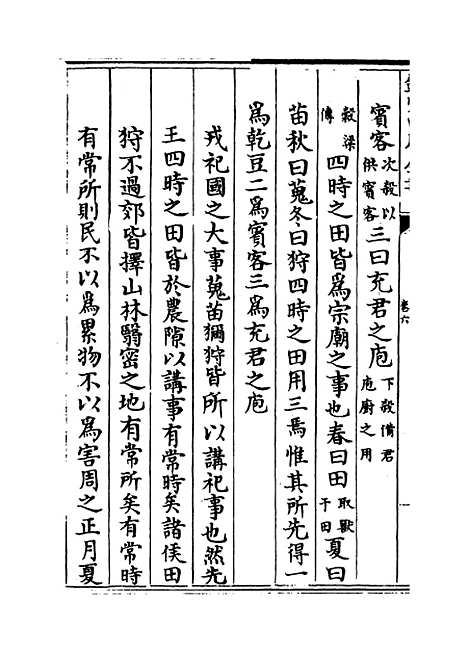 賓客次殺以供賓客三曰充君之庖下殺備君庖廚之用
穀梁傳四時之田皆爲宗廟之事也春曰田取獸于田夏曰
苗秋曰蒐冬曰狩四時之田用三焉惟其所先得一
爲乾豆二爲賓客三爲充君之庖
戎祀國之大事蒐苗獮狩皆所以講祀事也然先
王四時之田皆於農隙以講事有常時矣諸侯田
狩不過郊皆擇山林翳密之地有常所矣有常時
有常所則民不以爲累物不以爲害周之正月夏
卷六